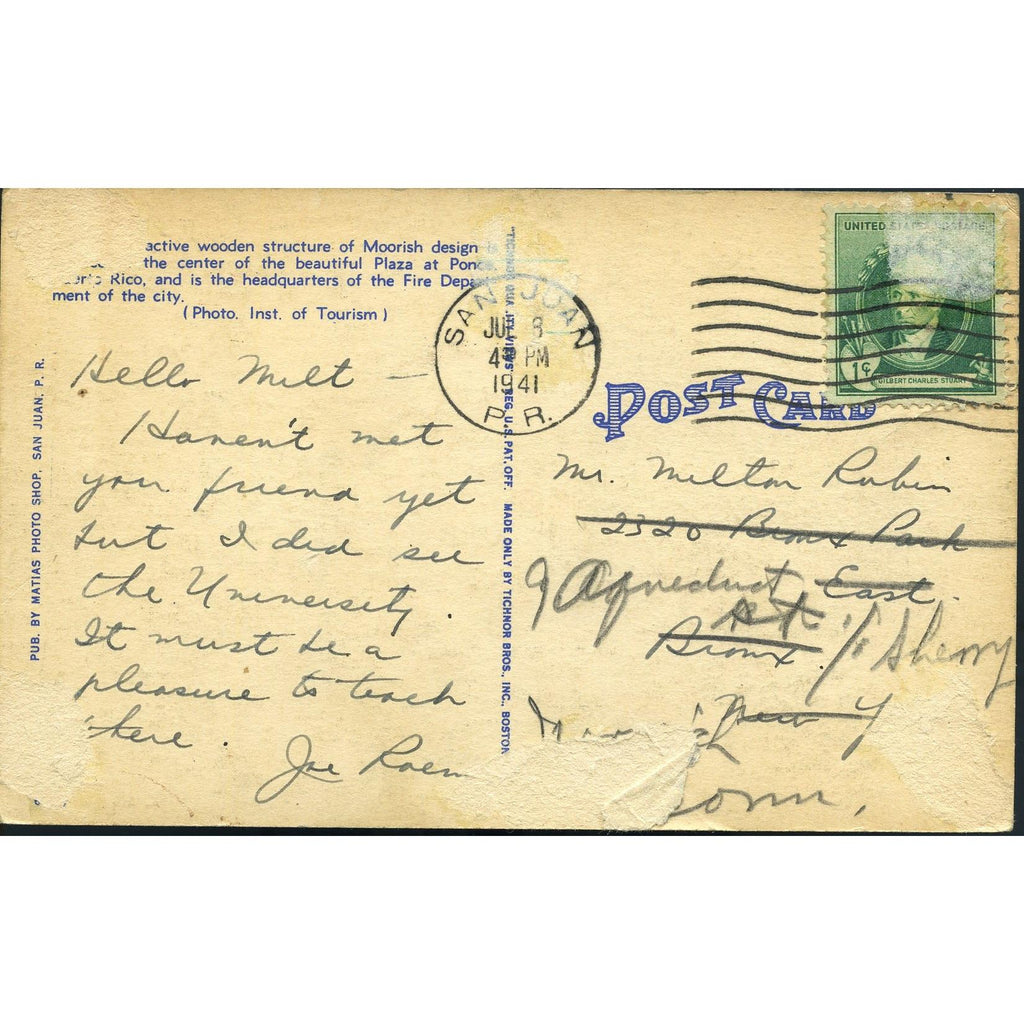 active wooden structure of Moorish design
the center of the beautiful Plaza at Pon
Rico, and is the headquarters of the Fire Depa
ment of the city.
(Photo. Inst. of Tourism)
Hello Milt —
Haven't met
your friend yet
but I did see
the University.
It must be a
pleasure to teach
there.
Joe
PUB. BY MATIAS PHOTO SHOP, SAN JUAN, P. R.
REG. U.S. PAT. OFF. MADE ONLY BY TICHNOR BROS., INC., BOSTON
SAN JUAN
4 PM
1941
P.R.
UNITED STATES POSTAGE
1¢
GILBERT CHARLES STUART
POST CARD
Mr. Milton Rubin
2320 Bronx Park
9 Aqueduct East
Bronx. c/o Sherry
New Y
onn,